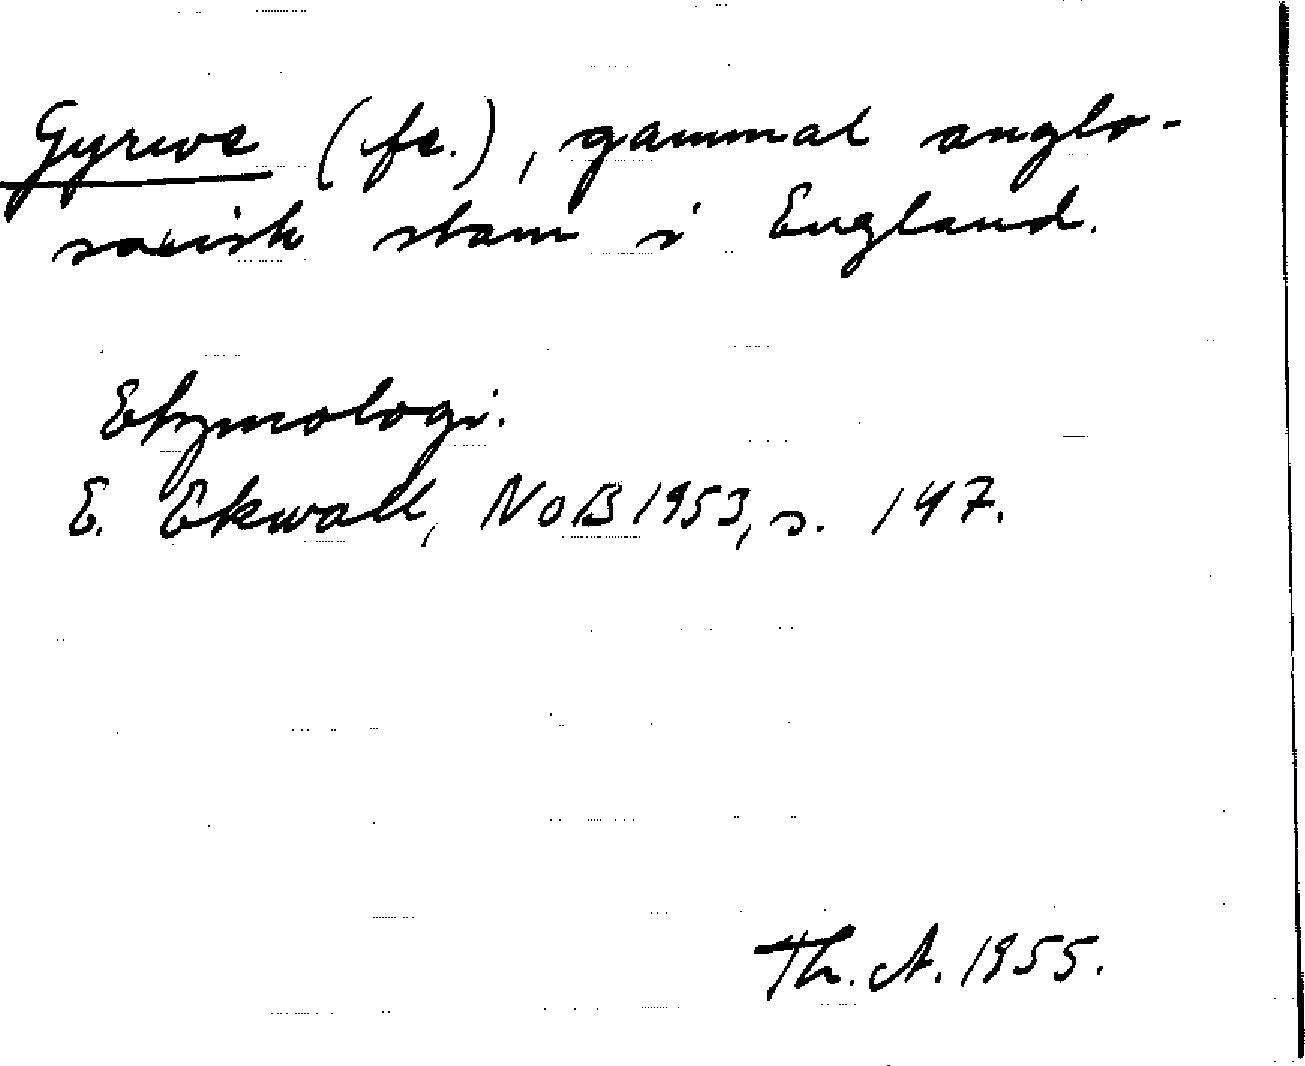 Gyrwe (fe.), gammal anglo-
saxisk stam i England.
Etymologi.
E. Ekwall, NoB 1953, s. 147.
Th. A. 1955.